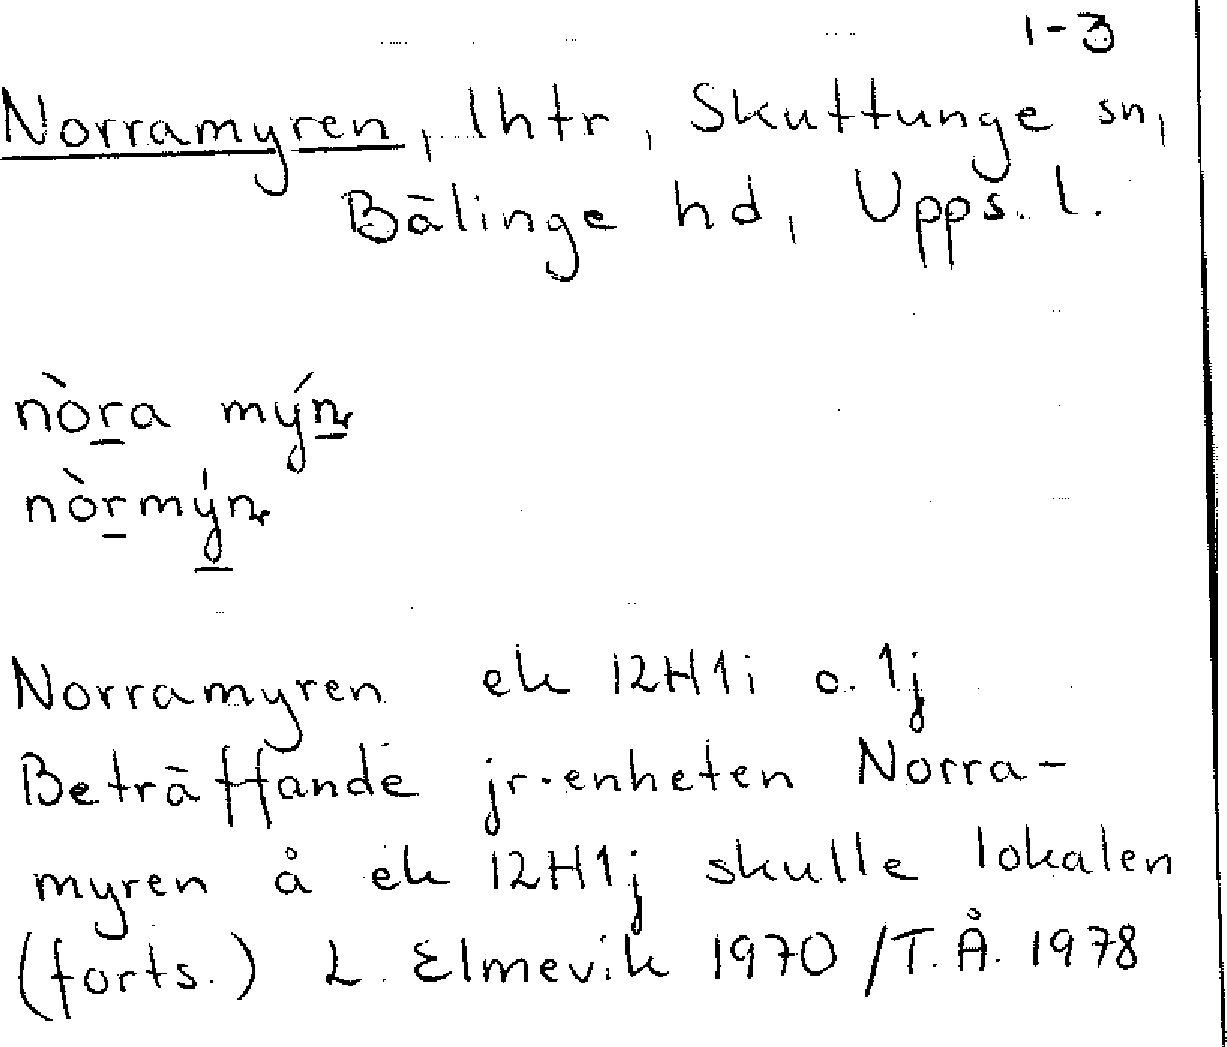 1-3
Norramyren, lhtr, Skuttunge sn,
Bälinge hd, Upps. l.
nòra mýn
nòrmýn
Norramyren ek 12H1i o. 1j
Beträffande jr-enheten Norra-
myren å ek 12H1j skulle lokalen
(forts.) L. Elmevik 1970 /T.Å. 1978